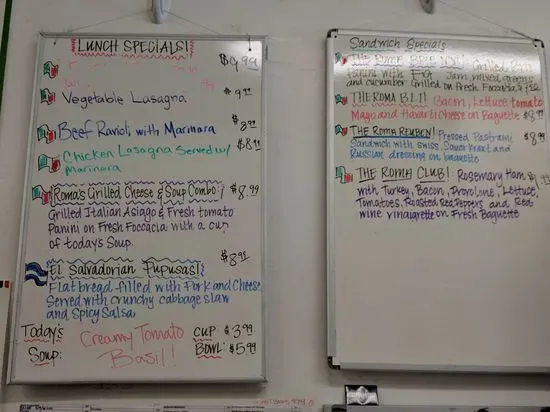 LUNCH SPECIALS!
$9.99
Vegetable Lasagna $9.99
Beef Ravioli with Marinara $8.99
Chicken Lasagna Served w/ $8.99
Marinara
Roma's Grilled Cheese & Soup Combo! $8.99
Grilled Italian Asiago & Fresh tomato
Panini on Fresh Foccacia with a cup
of today's Soup
$8.99
El Salvadorian Pupusas!
Flat bread filled with Pork and Cheese
Served with crunchy cabbage slaw
and Spicy Salsa
Today's Soup:
Creamy Tomato Basil!
CUP $3.99
BOWL: $5.99
Sandwich Specials
THE BRIE Grilled
Panini with Fig Jam, mixed greens
and cucumber Grilled on Fresh Foccacia
THE ROMA BLT! Bacon, Lettuce tomato
Mayo and Havarti Cheese on Baguette
THE ROMA REUBEN! Pressed Pastrami $8.99
Sandwich with swiss, Sauerkraut and
Russian dressing on baguette
THE ROMA CLUB! Rosemary Ham
with Turkey, Bacon, Provolone, Lettuce,
Tomatoes, Roasted Red Peppers and Red
wine vinaigrette on Fresh Baguette